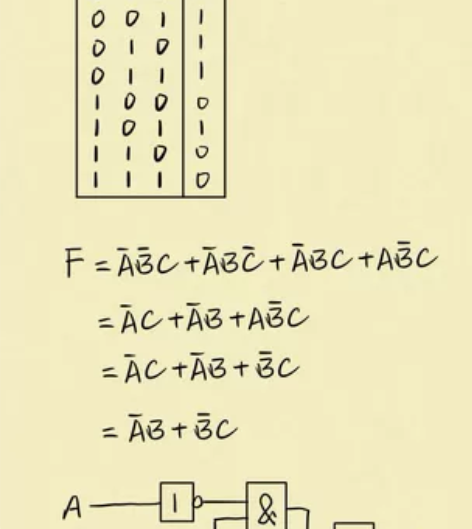 0 0 1 1
0 1 0 1
0 1 1 1
1 0 0 0
1 0 1 1
1 1 0 0
1 1 1 0
F = A̅B̅C + A̅BC̅ + A̅BC + AB̅C
= A̅C + A̅B + AB̅C
= A̅C + A̅B + B̅C
= A̅B + B̅C
A 1 &